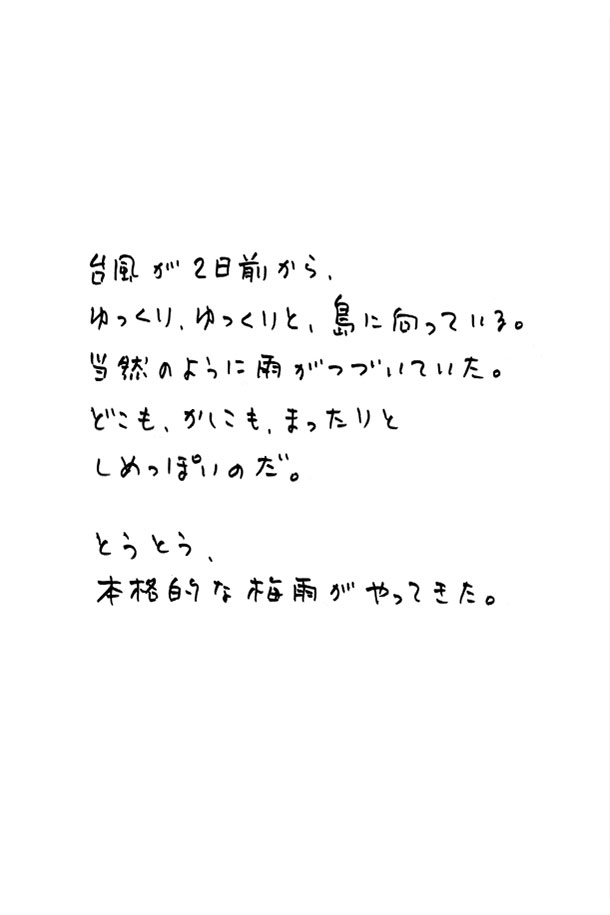 台風が2日前から、
ゆっくり、ゆっくりと、島に向っている。
当然のように雨がつづいていた。
どこも、かしこも、まったりと
しめっぽいのだ。
とうとう、
本格的な梅雨がやってきた。